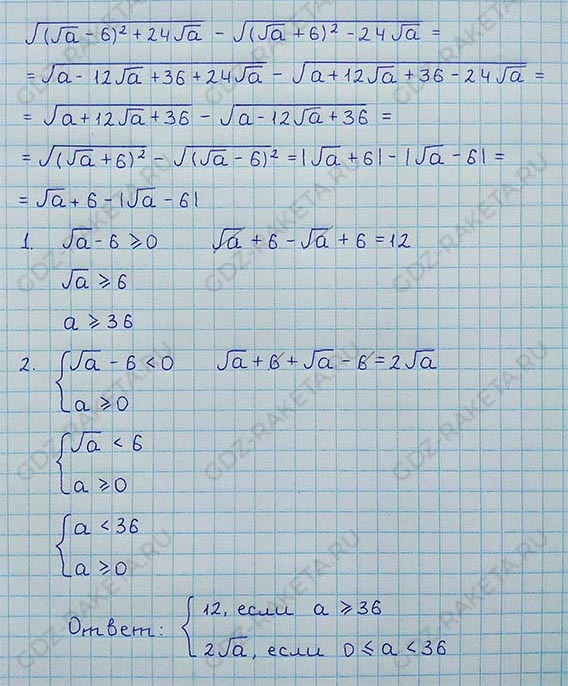 √((√a - 6)² + 24√a) - √((√a + 6)² - 24√a) =
= √(a - 12√a + 36 + 24√a) - √(a + 12√a + 36 - 24√a) =
= √(a + 12√a + 36) - √(a - 12√a + 36) =
= √((√a + 6)²) - √((√a - 6)²) = |√a + 6| - |√a - 6| =
= √a + 6 - |√a - 6|
1. √a - 6 ⩾ 0 √a + 6 - √a + 6 = 12
√a ⩾ 6
a ⩾ 36
2. { √a - 6 < 0 √a + 6 + √a - 6 = 2√a
a ⩾ 0
{ √a < 6
a ⩾ 0
{ a < 36
a ⩾ 0
Ответ: { 12, если a ⩾ 36
2√a, если 0 ⩽ a < 36
GDZ-RAKETA.RU